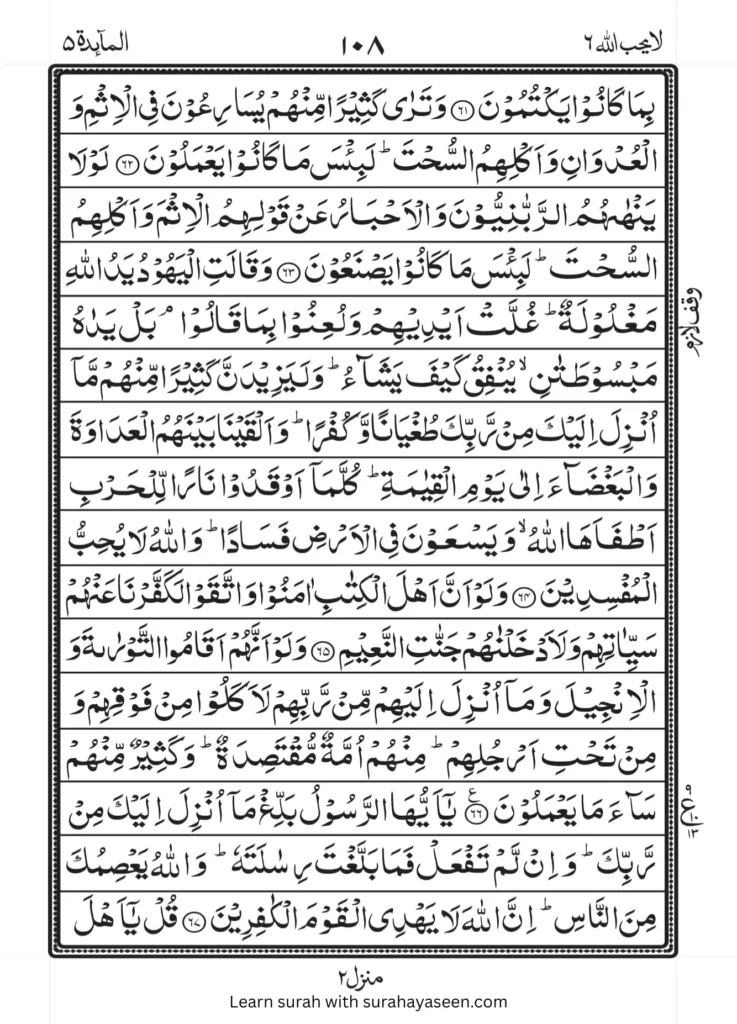 المآىِٕدة ۵
١٠٨
لا يحب الله ٦
بِمَا كَانُوۡا يَكۡتُمُوۡنَ ﴿۶۱﴾ وَتَرٰى كَثِيۡرًا مِّنۡهُمۡ يُسَارِعُوۡنَ فِى الۡاِثۡمِ وَ
الۡعُدۡوَانِ وَاَكۡلِهِمُ السُّحۡتَ‌ ؕ لَبِئۡسَ مَا كَانُوۡا يَعۡمَلُوۡنَ ﴿۶۲﴾ لَوۡلَا
يَنۡهٰٮهُمُ الرَّبَّانِيُّوۡنَ وَالۡاَحۡبَارُ عَنۡ قَوۡلِهِمُ الۡاِثۡمَ وَاَكۡلِهِمُ
السُّحۡتَ‌ ؕ لَبِئۡسَ مَا كَانُوۡا يَصۡنَعُوۡنَ ﴿۶۳﴾ وَقَالَتِ الۡيَهُوۡدُ يَدُ اللّٰهِ
مَغۡلُوۡلَةٌ‌ ؕ غُلَّتۡ اَيۡدِيۡهِمۡ وَلُعِنُوۡا بِمَا قَالُوۡا‌ ۘ بَلۡ يَدٰهُ
مَبۡسُوۡطَتٰنِ ۙ يُنۡفِقُ كَيۡفَ يَشَآءُ‌ ؕ وَلَيَزِيۡدَنَّ كَثِيۡرًا مِّنۡهُمۡ مَّاۤ
اُنۡزِلَ اِلَيۡكَ مِنۡ رَّبِّكَ طُغۡيَانًا وَّكُفۡرًا‌ ؕ وَاَلۡقَيۡنَا بَيۡنَهُمُ الۡعَدَاوَةَ
وَالۡبَغۡضَآءَ اِلٰى يَوۡمِ الۡقِيٰمَةِ‌ ؕ كُلَّمَاۤ اَوۡقَدُوۡا نَارًا لِّلۡحَرۡبِ
اَطۡفَاَهَا اللّٰهُ‌ ۙ وَيَسۡعَوۡنَ فِى الۡاَرۡضِ فَسَادًا‌ ؕ وَاللّٰهُ لَا يُحِبُّ
الۡمُفۡسِدِيۡنَ ﴿۶۴﴾ وَلَوۡ اَنَّ اَهۡلَ الۡكِتٰبِ اٰمَنُوۡا وَاتَّقَوۡا لَكَفَّرۡنَا عَنۡهُمۡ
سَيِّاٰتِهِمۡ وَلَاَدۡخَلۡنٰهُمۡ جَنّٰتِ النَّعِيۡمِ ﴿۶۵﴾ وَلَوۡ اَنَّهُمۡ اَقَامُوا التَّوۡرٰٮةَ وَ
الۡاِنۡجِيۡلَ وَمَاۤ اُنۡزِلَ اِلَيۡهِمۡ مِّنۡ رَّبِّهِمۡ لَاَكَلُوۡا مِنۡ فَوۡقِهِمۡ وَ
مِنۡ تَحۡتِ اَرۡجُلِهِمۡ‌ ؕ مِنۡهُمۡ اُمَّةٌ مُّقۡتَصِدَةٌ‌ ؕ وَكَثِيۡرٌ مِّنۡهُمۡ
سَآءَ مَا يَعۡمَلُوۡنَ ﴿۶۶﴾ ع يٰۤاَيُّهَا الرَّسُوۡلُ بَلِّغۡ مَاۤ اُنۡزِلَ اِلَيۡكَ مِنۡ
رَّبِّكَ‌ ؕ وَاِنۡ لَّمۡ تَفۡعَلۡ فَمَا بَلَّغۡتَ رِسٰلَتَهٗ‌ ؕ وَاللّٰهُ يَعۡصِمُكَ
مِنَ النَّاسِ‌ ؕ اِنَّ اللّٰهَ لَا يَهۡدِى الۡقَوۡمَ الۡـكٰفِرِيۡنَ ﴿۶۷﴾ قُلۡ يٰۤاَهۡلَ
وقف لازم
ع
١٣
منزل ٢
Learn surah with surahayaseen.com